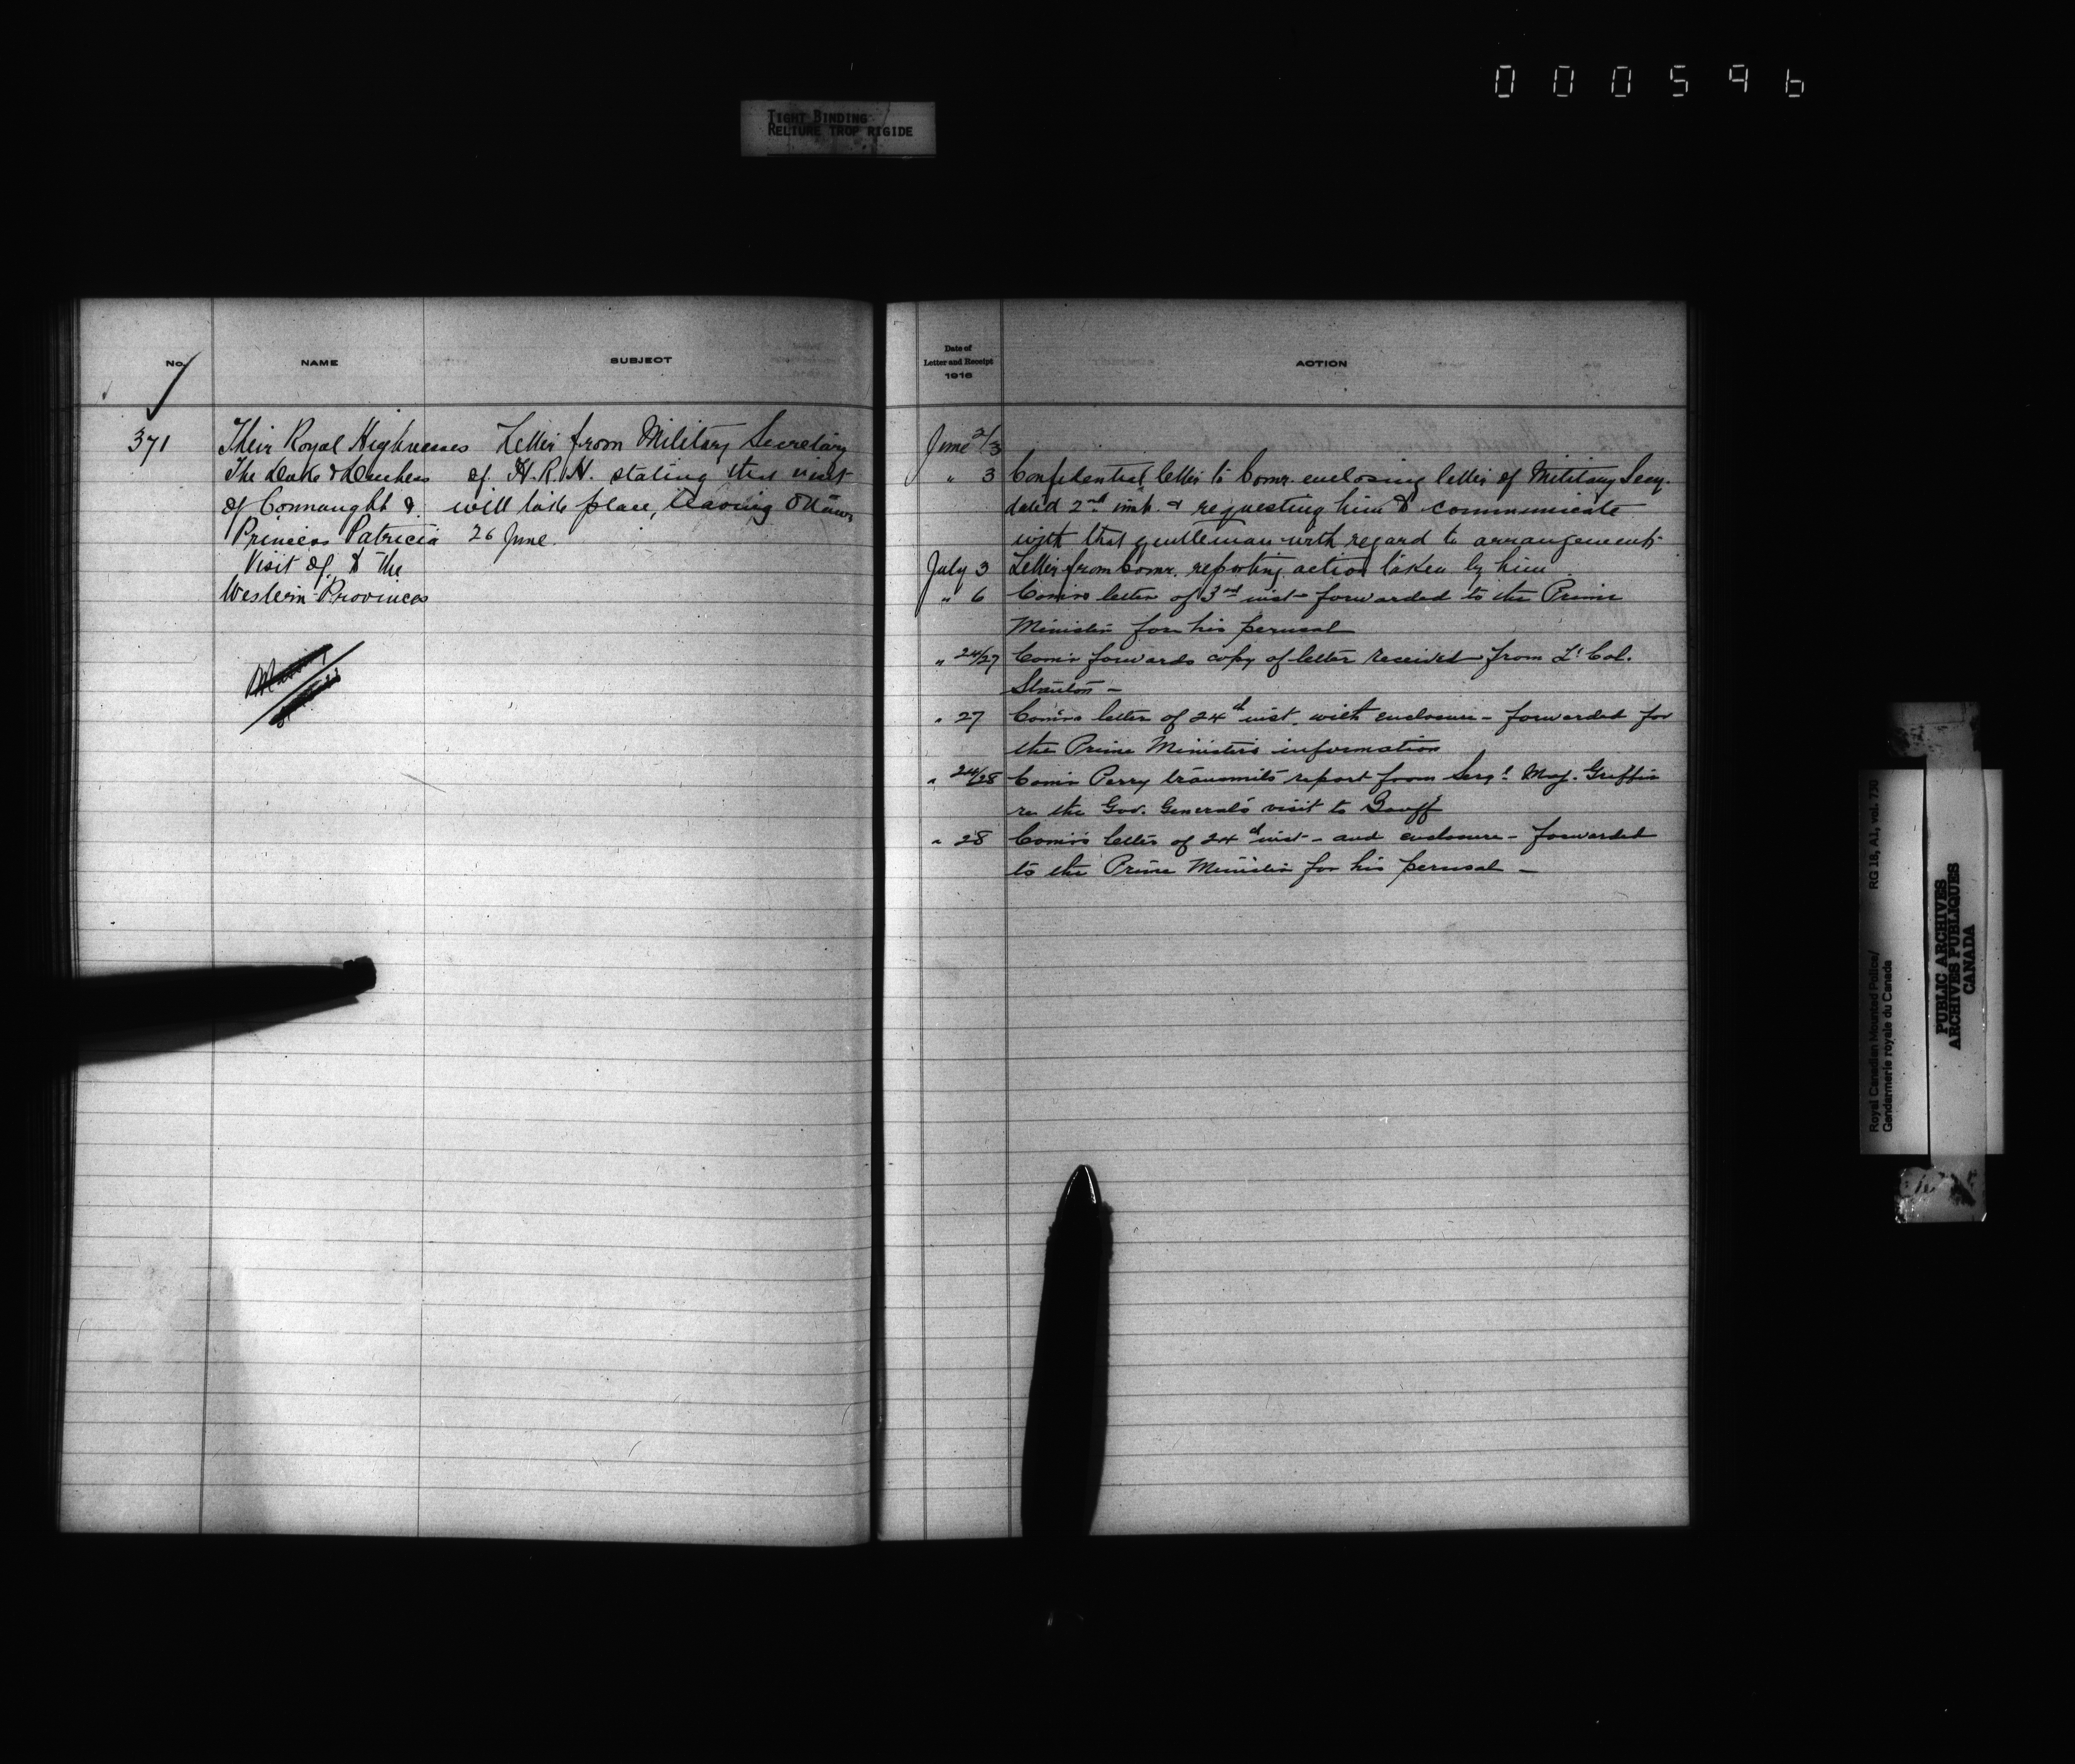 000596
TIGHT BINDING
RELIURE TROP RIGIDE
No.
NAME
SUBJECT
371
Their Royal Highnesses
The Duke & Duchess
of Connaught &
Princess Patricia
Visit of, to the
Western Provinces
Letter from Military Secretary
of H.R.H. stating that visit
will take place, leaving Ottawa
26 June.
Date of
Letter and Receipt
1916
ACTION
June 2/3
" 3 Confidential letter to Comr. enclosing letter of Military Secy.
dated 2nd inst. & requesting him to communicate
with that gentleman with regard to arrangements.
July 3 Letter from Comr. reporting action taken by him.
" 6 Comr's letter of 3rd inst forwarded to the Prime
Minister for his perusal
" 24/27 Com'r forwards copy of letter received from Lt Col.
Stanton –
" 27 Com'rs letter of 24th inst. with enclosure – forwarded for
the Prime Minister's information
" 24/28 Com'r Perry transmits report from Sergt. Maj. Griffin
re the Gov. General's visit to Banff
" 28 Com'rs letter of 24th inst – and enclosure – forwarded
to the Prime Minister for his perusal –
Royal Canadian Mounted Police/
Gendarmerie royale du Canada
RG 18, A1, vol. 770
PUBLIC ARCHIVES
ARCHIVES PUBLIQUES
CANADA